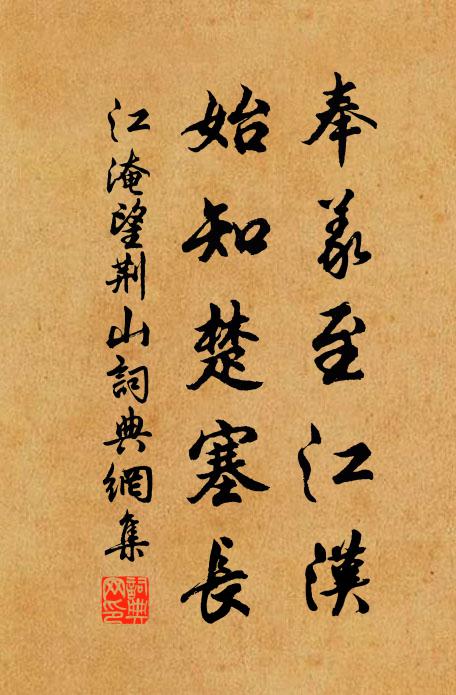 奉義至江漢
始知楚塞長
江淹望荆山詞典網集
詞典
网印